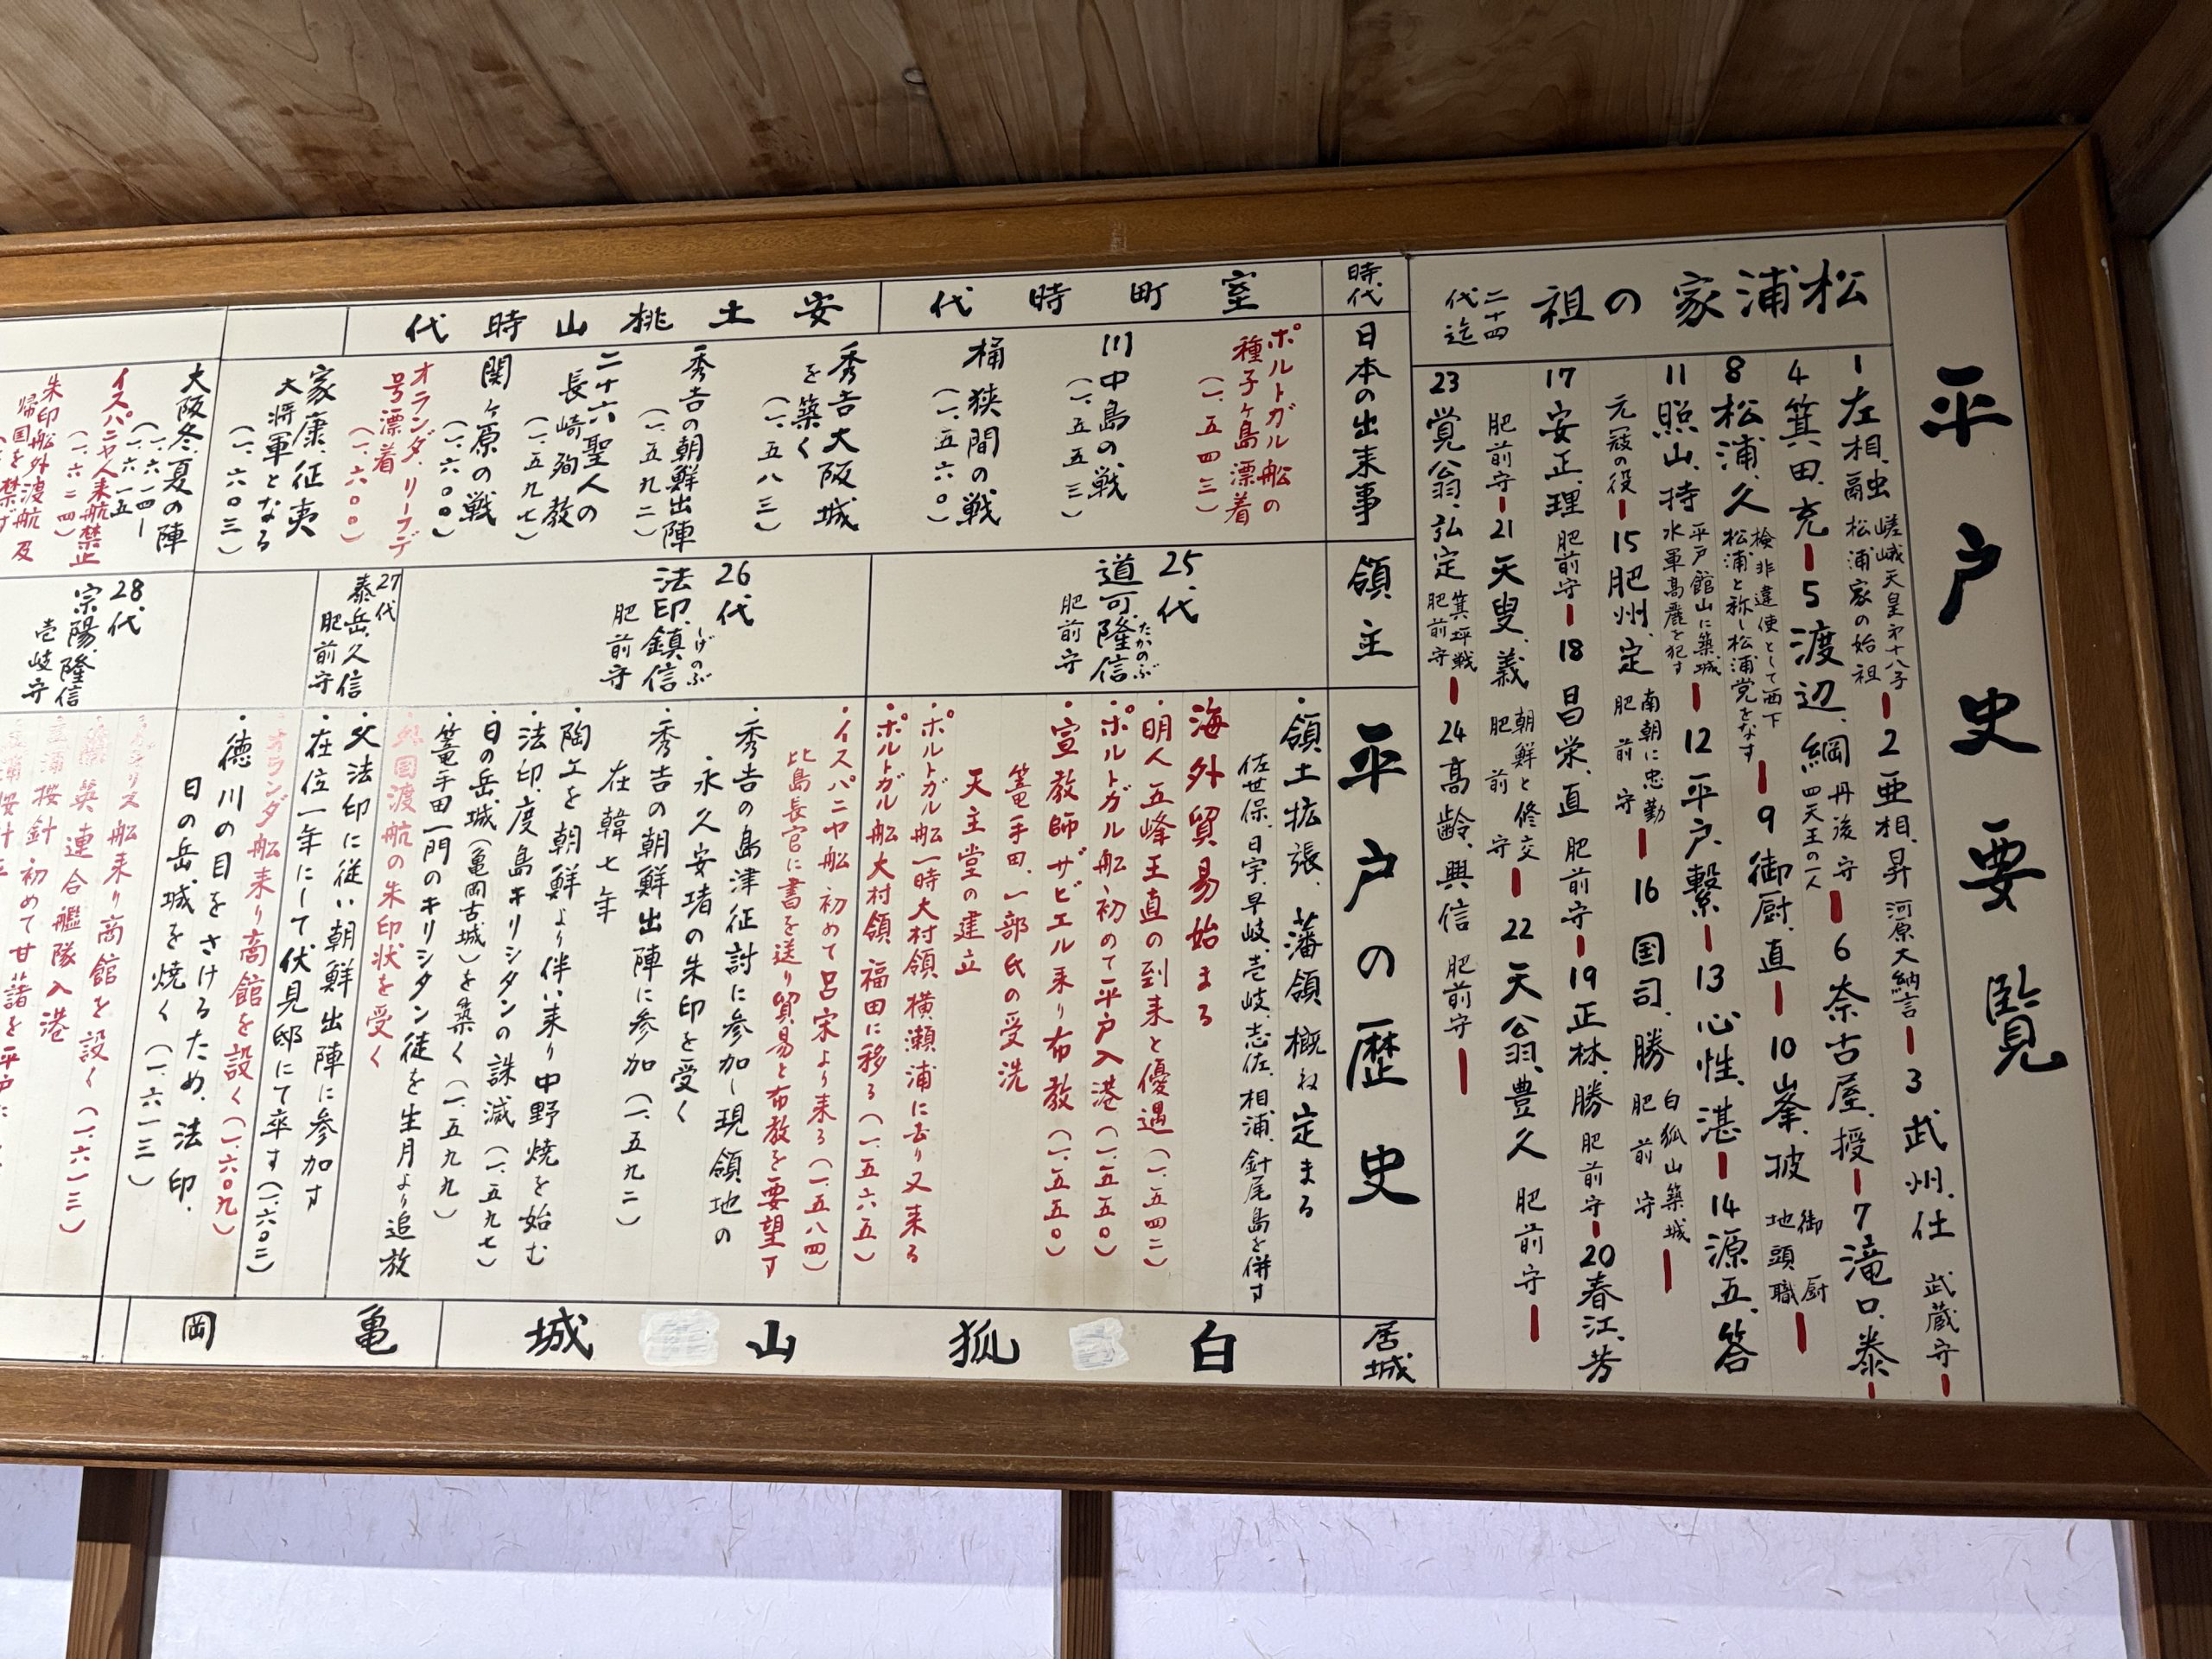 平戸史要覧
松浦家の祖 二十四代迄
1 左相、融 嵯峨天皇才十八子 松浦家の始祖
2 亜相、昇 河原大納言
3 武州、仕 武蔵守
4 箕田、充
5 渡辺、綱 丹後守 四天王の一人
6 奈古屋、授
7 滝口、泰
8 松浦、久 検非違使として西下 松浦と称し松浦党をなす
9 御厨、直
10 峯、披 御厨地頭職
11 照山、持 平戸館山に築城 水軍高麗を犯す
12 平戸、繋
13 心性、湛
14 源五、答
元冦の役
15 肥州、定 南朝に忠勤 肥前守
16 国司、勝 白狐山築城 肥前守
17 安正、理 肥前守
18 昌栄、直 肥前守
19 正林、勝 肥前守
20 春江、芳
肥前守
21 天叟、義 朝鮮と修交 肥前守
22 天公羽、豊久 肥前守
23 覚翁、弘定 箕坪戦 肥前守
24 高齢、興信 肥前守
時代
日本の出来事
領主
平戸の歴史
居城
室町時代
ポルトガル船の
種子ヶ島漂着
(一、五四三)
川中島の戦
(一、五五三)
桶狭間の戦
(一、五六〇)
25代
道可、隆信 たかのぶ
肥前守
・領土拡張、藩領概ね定まる
佐世保、日宇、早岐、壱岐、志佐、相浦、針尾島を併す
海外貿易始まる
・明人五峰王直の到来と優遇(一、五四二)
・ポルトガル船初めて平戸入港(一、五五〇)
・宣教師ザビエル来り布教(一、五五〇)
篭手田、一部氏の受洗
天主堂の建立
・ポルトガル船一時大村領横瀬浦に去り又来る
・ポルトガル船大村領福田に移る(一、五六五)
安土桃山時代
秀吉大阪城
を築く
(一、五八三)
秀吉の朝鮮出陣
(一、五九二)
二十六聖人の
長崎殉教
(一、五九七)
関ヶ原の戦
(一、六〇〇)
オランダ、リーフデ
号漂着
(一、六〇〇)
26代
法印、鎮信 しげのぶ
肥前守
・イスパニヤ船初めて呂宋より来る(一、五八四)
比島長官に書を送り貿易と布教を要望す
・秀吉の島津征討に参加し現領地の
永久安堵の朱印を受く
・秀吉の朝鮮出陣に参加(一、五九二)
在韓七年
・陶工を朝鮮より伴い来り中野焼を始む
・法印、度島キリシタンの誅滅(一、五九七)
・日の岳城(亀岡古城)を築く(一、五九九)
・篭手田一門のキリシタン徒を生月より追放
・外国渡航の朱印状を受く
家康、征夷
大将軍となる
(一、六〇三)
27代
泰岳、久信
肥前守
・父法印に従い朝鮮出陣に参加す
・在位一年にして伏見邸にて卒す(一、六〇二)
大阪冬、夏の陣
(一、六一四ー
一、六一五)
イスパニヤ人来航禁止
(一、六二四)
朱印船外渡航及
帰国を禁ず
28代
宗陽、隆信
壱岐守
・オランダ船来り商館を設く(一、六〇九)
・徳川の目をさけるため、法印、
日の岳城を焼く(一、六一三)
・イギリス船来り商館を設く(一、六一三)
連合艦隊入港
按針初めて甘藷を平戸に
白狐山城
亀岡